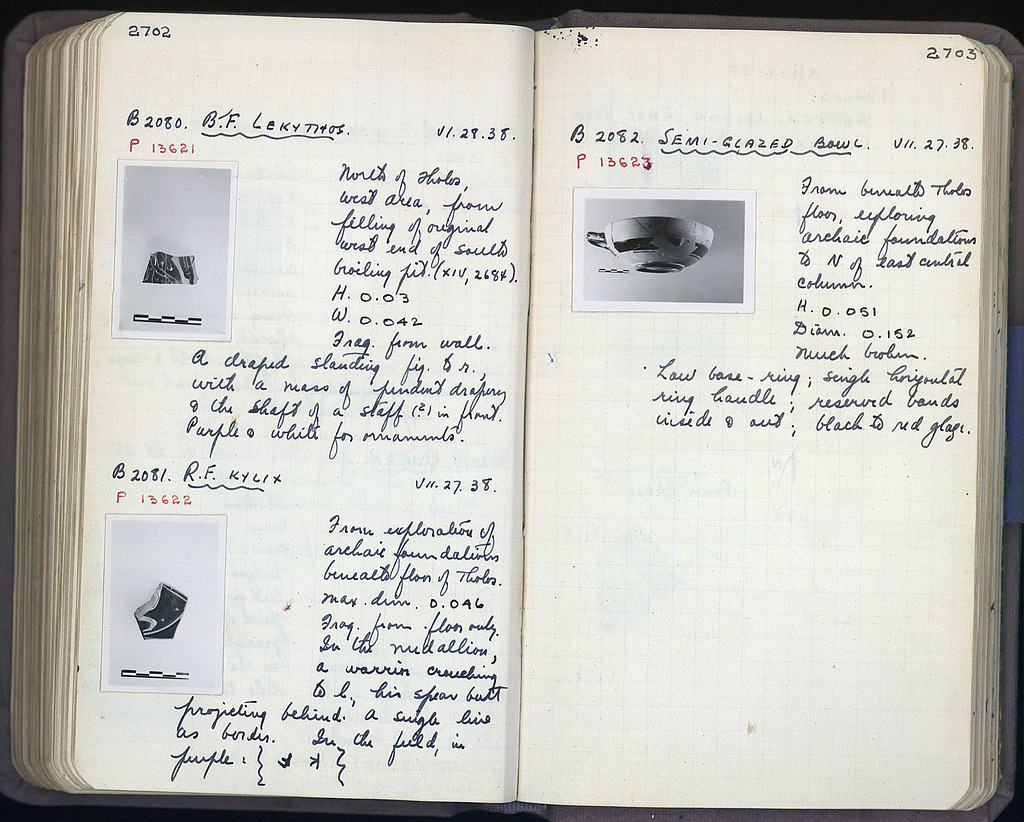 2702
B 2080. B.F. LEKYTHOS. VI.28.38.
P 13621
North of Tholos,
west area, from
filling of original
west end of south
broiling pit. (XIV, 2684).
H. 0.03
W. 0.042
Frag. from wall.
A draped standing fig. to r.,
with a mass of pendent drapery
& the shaft of a staff (?) in front.
Purple & white for ornaments.
B 2081. R.F. KYLIX VII.27.38.
P 13622
From exploration of
archaic foundations
beneath floor of Tholos.
Max. dim. 0.046
Frag. from floor only.
In the medallion,
a warrior crouching
to l., his spear butt
projecting behind. A single line
as border. In the field, in
purple:
2703
B 2082. SEMI-GLAZED BOWL. VII.27.38.
P 13623
From beneath Tholos
floor, exploring
archaic foundations
to N of east central
column.
H. 0.051
Diam. 0.152
Much broken.
Low base-ring; single horizontal
ring handle; reserved bands
inside & out; black to red glaze.